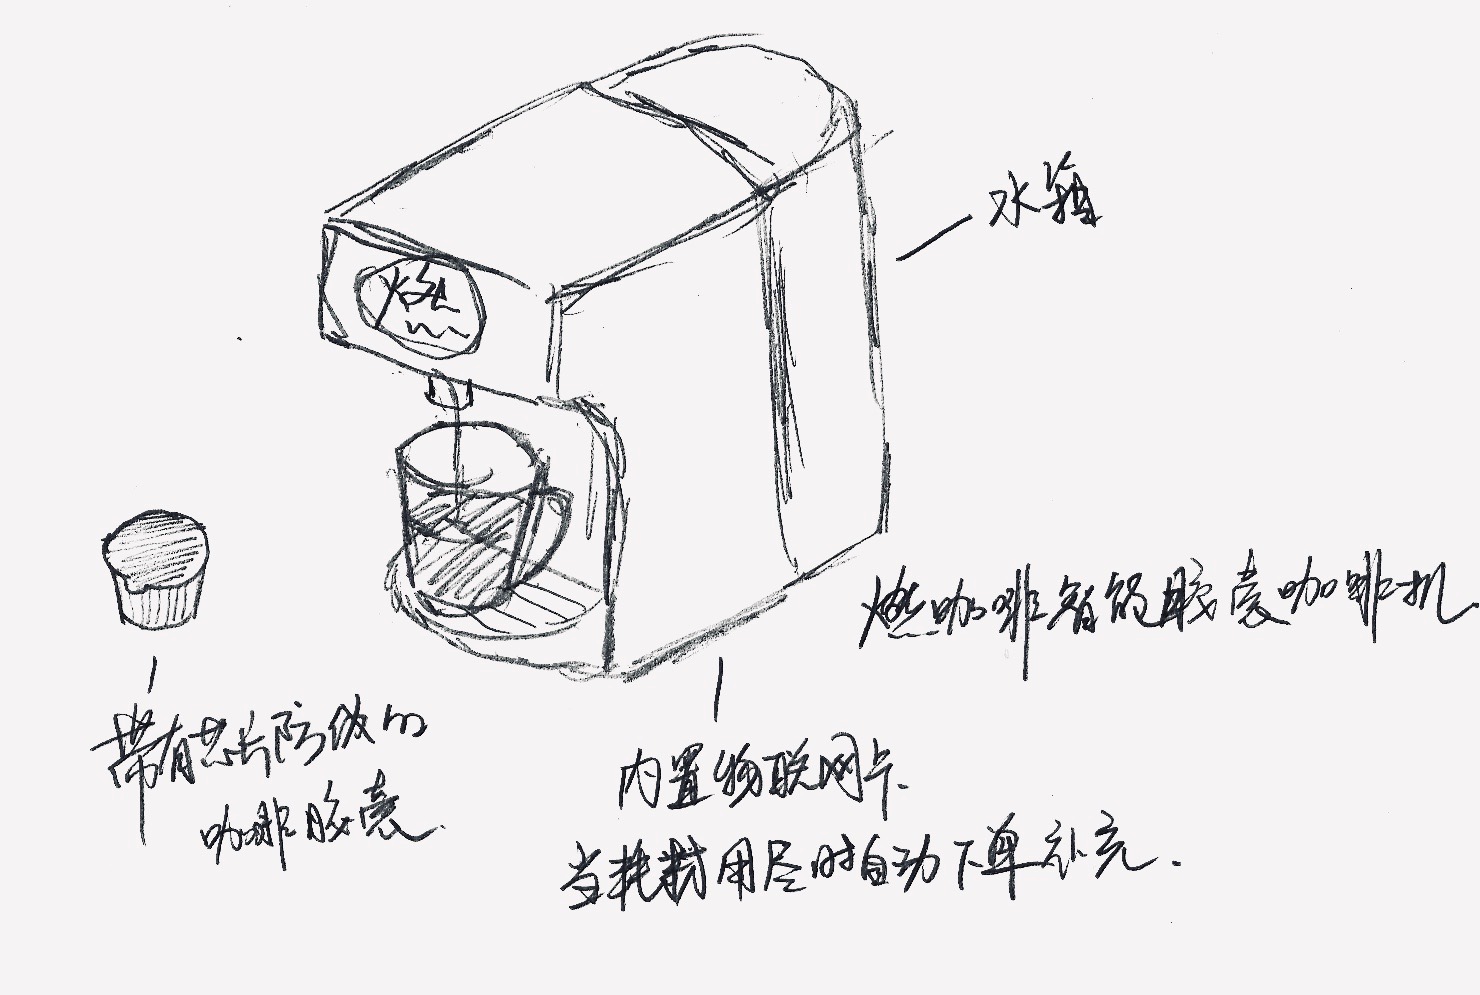 水箱
燃
燃咖啡智能胶囊咖啡机
带有芯片防伪的
咖啡胶囊.
内置物联网卡.
当耗材用尽时自动下单补充.